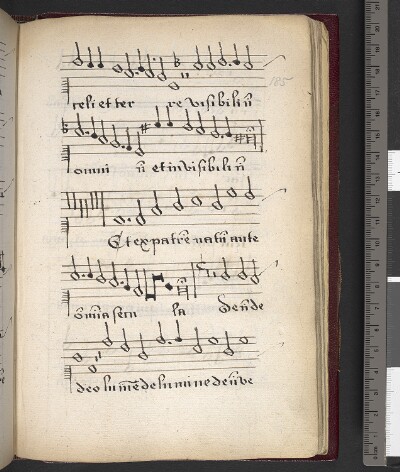 185
celi et ter re visibiliū
omni ū et invisibiliū
Et ex patrē natū ante
ōnia secu la deū de
deo lumē de lumine deū ve